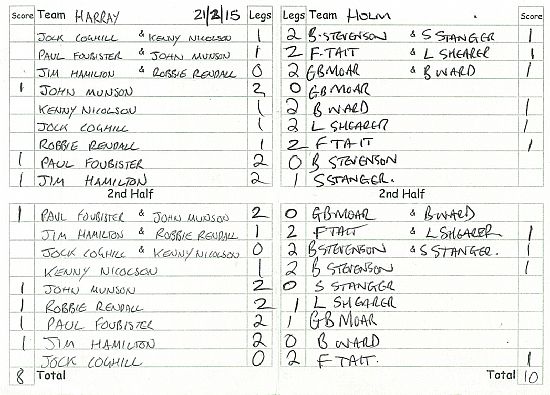 Score Team HARRAY 21/2/15 Legs Legs Team HOLM . Score
JOCK COGHILL & KENNY NICOLSON 1 2 B. STEVENSON & S STANGER 1
PAUL FOUBISTER & JOHN MUNSON 1 2 F. TAIT & L SHEARER 1
JIM HAMILTON & ROBBIE RENDALL 0 2 GB MOAR & B WARD 1
1 JOHN MUNSON 2 0 GB MOAR
KENNY NICOLSON 1 2 B WARD 1
JOCK COGHILL 1 2 L SHEARER 1
ROBBIE RENDALL 1 2 F TAIT 1
1 PAUL FOUBISTER 2 0 B STEVENSON
1 JIM HAMILTON 2 1 S STANGER.
2nd Half 2nd Half
1 PAUL FOUBISTER & JOHN MUNSON 2 0 GB MOAR & B WARD
JIM HAMILTON & ROBBIE RENDALL 1 2 F TAIT & L SHEARER 1
JOCK COGHILL & KENNY NICOLSON 0 2 B STEVENSON & S STANGER. 1
KENNY NICOLSON 1 2 B STEVENSON 1
1 JOHN MUNSON 2 0 S STANGER
1 ROBBIE RENDALL 2 1 L SHEARER
1 PAUL FOUBISTER 2 1 GB MOAR
1 JIM HAMILTON 2 0 B WARD
JOCK COGHILL 0 2 F TAIT. 1
8 Total Total 10